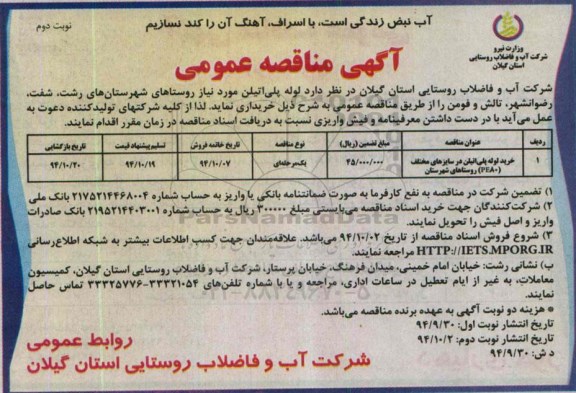 آب نبض زندگی است، با اسراف، آهنگ آن را کند نسازیم
نوبت دوم
وزارت نیرو
شرکت آب و فاضلاب روستایی
استان گیلان
آگهی مناقصه عمومی
شرکت آب و فاضلاب روستایی استان گیلان در نظر دارد لوله پلی‌اتیلن مورد نیاز روستاهای شهرستان‌های رشت، شفت،
رضوانشهر، تالش و فومن را از طریق مناقصه عمومی به شرح ذیل خریداری نماید. لذا از کلیه شرکتهای تولیدکننده دعوت به
عمل می‌آید با در دست داشتن معرفینامه و فیش واریزی نسبت به دریافت اسناد مناقصه در زمان مقرر اقدام نمایند.
ردیف عنوان مناقصه مبلغ تضمین (ریال) نوع مناقصه تاریخ خاتمه فروش تسلیم پیشنهاد قیمت تاریخ بازگشایی
۱ خرید لوله پلی‌اتیلن در سایزهای مختلف (PE۸۰) روستاهای شهرستان ۴۵/۰۰۰/۰۰۰ یک‌مرحله‌ای ۹۴/۱۰/۰۷ ۹۴/۱۰/۱۹ ۹۴/۱۰/۲۰
۱) تضمین شرکت در مناقصه به نفع کارفرما به صورت ضمانتنامه بانکی یا واریز به حساب شماره ۲۱۷۵۲۱۴۴۶۸۰۰۴ بانک ملی
۲) شرکت‌کنندگان جهت خرید اسناد مناقصه می‌بایستی مبلغ ۳۰۰۰۰۰ ریال به حساب شماره ۲۱۹۵۲۱۴۴۰۳۰۰۱ بانک صادرات
واریز و اصل فیش را تحویل نمایند.
۳) شروع فروش اسناد مناقصه از تاریخ ۹۴/۱۰/۰۲ می‌باشد. علاقه‌مندان جهت کسب اطلاعات بیشتر به شبکه اطلاع‌رسانی
HTTP://IETS.MPORG.IR مراجعه نمایند.
ب) نشانی رشت: خیابان امام خمینی، میدان فرهنگ، خیابان پرستار، شرکت آب و فاضلاب روستایی استان گیلان، کمیسیون
معاملات، به غیر از ایام تعطیل در ساعات اداری، مراجعه و یا با شماره تلفن‌های ۳۳۳۲۱۰۵۴-۳۳۳۲۵۷۷۶ تماس حاصل
نمایند.
* هزینه دو نوبت آگهی به عهده برنده مناقصه می‌باشد.
تاریخ انتشار نوبت اول: ۹۴/۹/۳۰
تاریخ انتشار نوبت دوم: ۹۴/۱۰/۲
د ش: ۹۴/۹/۳۰
روابط عمومی
شرکت آب و فاضلاب روستایی استان گیلان
ParsNamadData